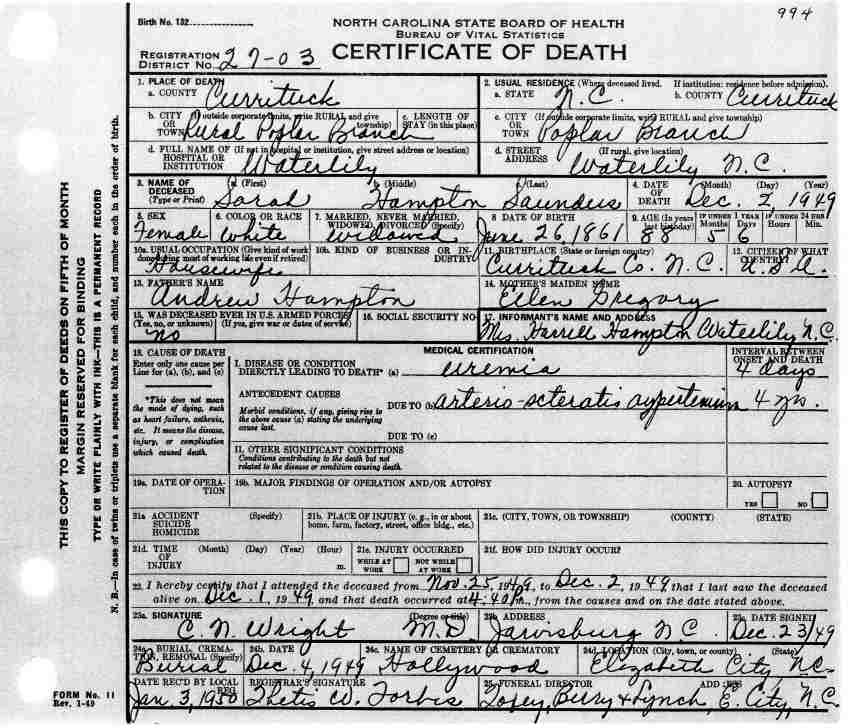 994
Birth No. 132
NORTH CAROLINA STATE BOARD OF HEALTH
BUREAU OF VITAL STATISTICS
REGISTRATION DISTRICT NO. 27-03
CERTIFICATE OF DEATH
1. PLACE OF DEATH
a. COUNTY Currituck
2. USUAL RESIDENCE (Where deceased lived. If institution: residence before admission).
a. STATE N.C. b. COUNTY Currituck
b. CITY OR TOWN (If outside corporate limits, write RURAL and give township) Rural Poplar Branch
c. LENGTH OF STAY (in this place)
c. CITY OR TOWN (If outside corporate limits, write RURAL and give township) Poplar Branch
d. FULL NAME OF HOSPITAL OR INSTITUTION (If not in hospital or institution, give street address or location) Waterlily
d. STREET ADDRESS (If rural, give location) Waterlily N.C.
3. NAME OF DECEASED (Type or Print)
a. (First) Sarah b. (Middle) Hampton c. (Last) Saunders
4. DATE OF DEATH (Month) (Day) (Year) Dec. 2, 1949
5. SEX Female
6. COLOR OR RACE White
7. MARRIED, NEVER MARRIED, WIDOWED, DIVORCED (Specify) widowed
8 DATE OF BIRTH June 26, 1861
9. AGE (In years last birthday) 88
IF UNDER 1 YEAR Months 5 Days 6
IF UNDER 24 HRS. Hours Min.
10a. USUAL OCCUPATION (Give kind of work done during most of working life, even if retired) Housewife
10b. KIND OF BUSINESS OR INDUSTRY
11. BIRTHPLACE (State or foreign country) Currituck Co. N.C.
12. CITIZEN OF WHAT COUNTRY? U.S.A.
13. FATHER'S NAME Andrew Hampton
14. MOTHER'S MAIDEN NAME Ellen Gregory
15. WAS DECEASED EVER IN U.S. ARMED FORCES? (Yes, no, or unknown) (If yes, give war or dates of service) no
16. SOCIAL SECURITY NO.
17. INFORMANT'S NAME AND ADDRESS Mrs. Harrell Hampton Waterlily N.C.
18. CAUSE OF DEATH
Enter only one cause per line for (a), (b), and (c)
*This does not mean the mode of dying, such as heart failure, asthenia, etc. It means the disease, injury, or complication which caused death.
MEDICAL CERTIFICATION
INTERVAL BETWEEN ONSET AND DEATH
I. DISEASE OR CONDITION DIRECTLY LEADING TO DEATH* (a) uremia 4 days
ANTECEDENT CAUSES
Morbid conditions, if any, giving rise to the above cause (a) stating the underlying cause last.
DUE TO (b) arterio-scleratis 4 yrs.
DUE TO (c)
II. OTHER SIGNIFICANT CONDITIONS
Conditions contributing to the death but not related to the disease or condition causing death.
19a. DATE OF OPERATION
19b. MAJOR FINDINGS OF OPERATION AND/OR AUTOPSY
20. AUTOPSY? YES NO
21a ACCIDENT SUICIDE HOMICIDE (Specify)
21b. PLACE OF INJURY (e. g., in or about home, farm, factory, street, office bldg., etc.)
21c. (CITY, TOWN, OR TOWNSHIP) (COUNTY) (STATE)
21d. TIME OF INJURY (Month) (Day) (Year) (Hour) m.
21e. INJURY OCCURRED WHILE AT WORK NOT WHILE AT WORK
21f. HOW DID INJURY OCCUR?
22. I hereby certify that I attended the deceased from Nov. 25, 1949, to Dec. 2, 1949, that I last saw the deceased
alive on Dec. 1, 1949, and that death occurred at 4:40 p.m., from the causes and on the date stated above.
23a. SIGNATURE (Degree or title) C. N. Wright M.D.
23b. ADDRESS Jarvisburg N.C.
23c. DATE SIGNED Dec. 23/49
24a. BURIAL, CREMATION, REMOVAL (Specify) Burial
24b. DATE Dec. 4, 1949
24c. NAME OF CEMETERY OR CREMATORY Hollywood
24d. LOCATION (City, town, or county) (State) Elizabeth City N.C.
DATE REC'D BY LOCAL REG. Jan. 3, 1950
REGISTRAR'S SIGNATURE Thetis W. Forbes
25. FUNERAL DIRECTOR ADDRESS Berry & Lynch, E. City, N.C.
FORM No. 11
Rev. 1-49
THIS COPY TO REGISTER OF DEEDS ON FIFTH OF MONTH
MARGIN RESERVED FOR BINDING
TYPE OR WRITE PLAINLY WITH INK—THIS IS A PERMANENT RECORD
N. B.—In case of twins or triplets use a separate blank for each child, and number each in the order of birth.